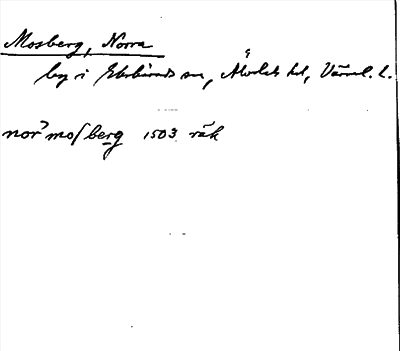 Mosberg, Norra
by i Ekshärads sn, Älvdals hd, Värml. l.
nor? mosberg 1503 räk